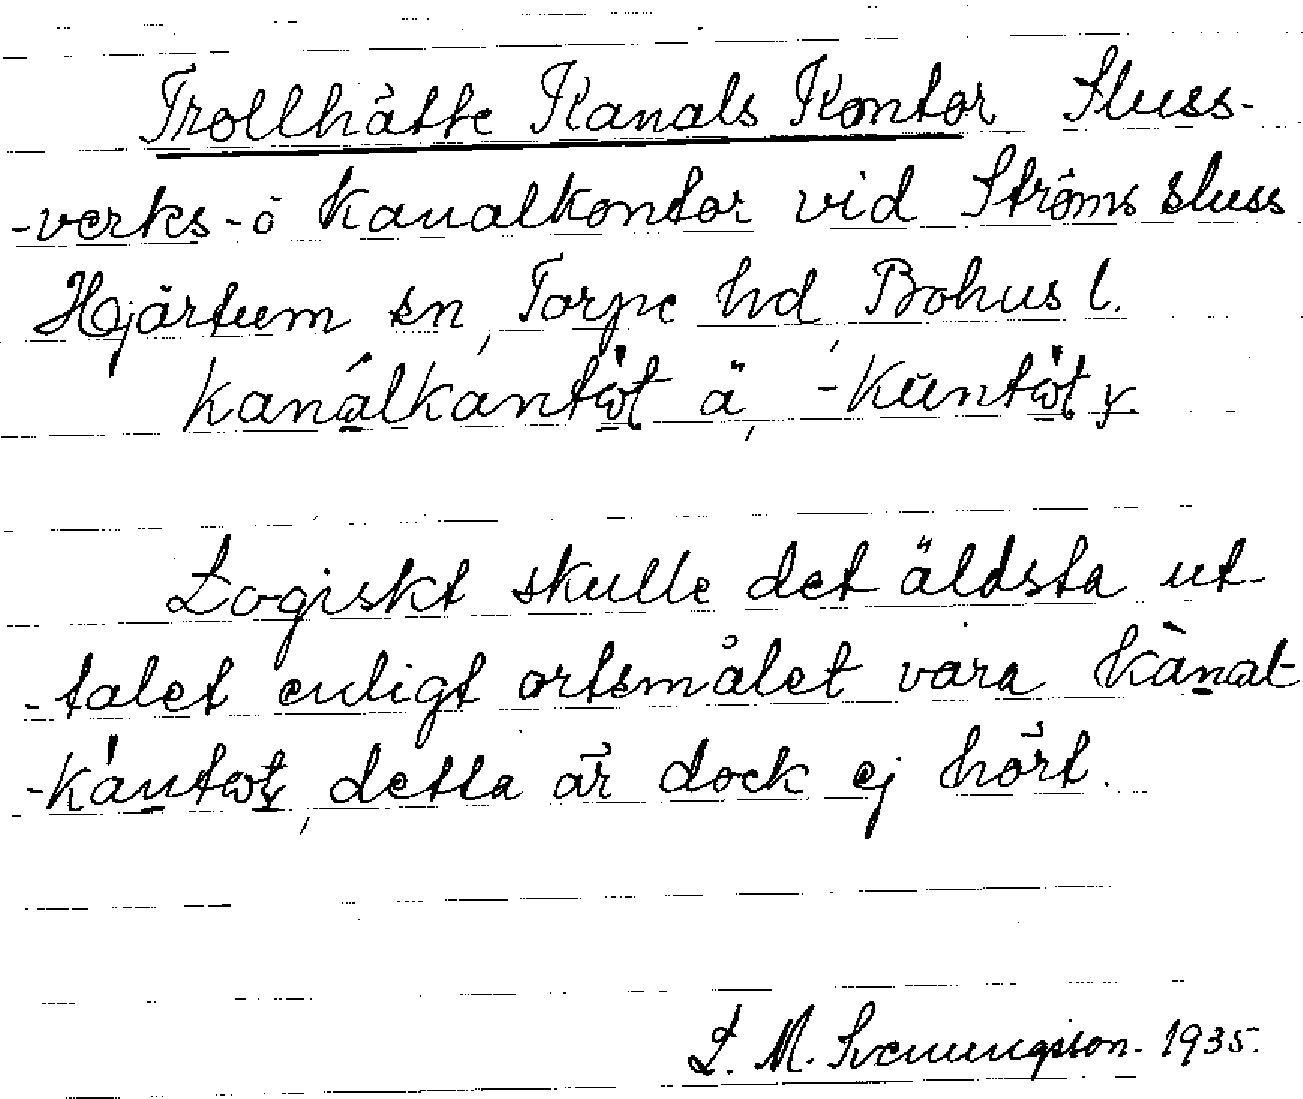 Trollhätte Kanals Kontor Sluss-
-verks- o kanalkontor vid Ströms sluss
Hjärtum sn, Torpe hd, Bohus l.
kanálkantωt ä, -kŭntωt y.
Logiskt skulle det äldsta ut-
-talet enligt ortsmålet vara kànal-
-kántωt, detta är dock ej hört.
L. M. Svenungsson. 1935.